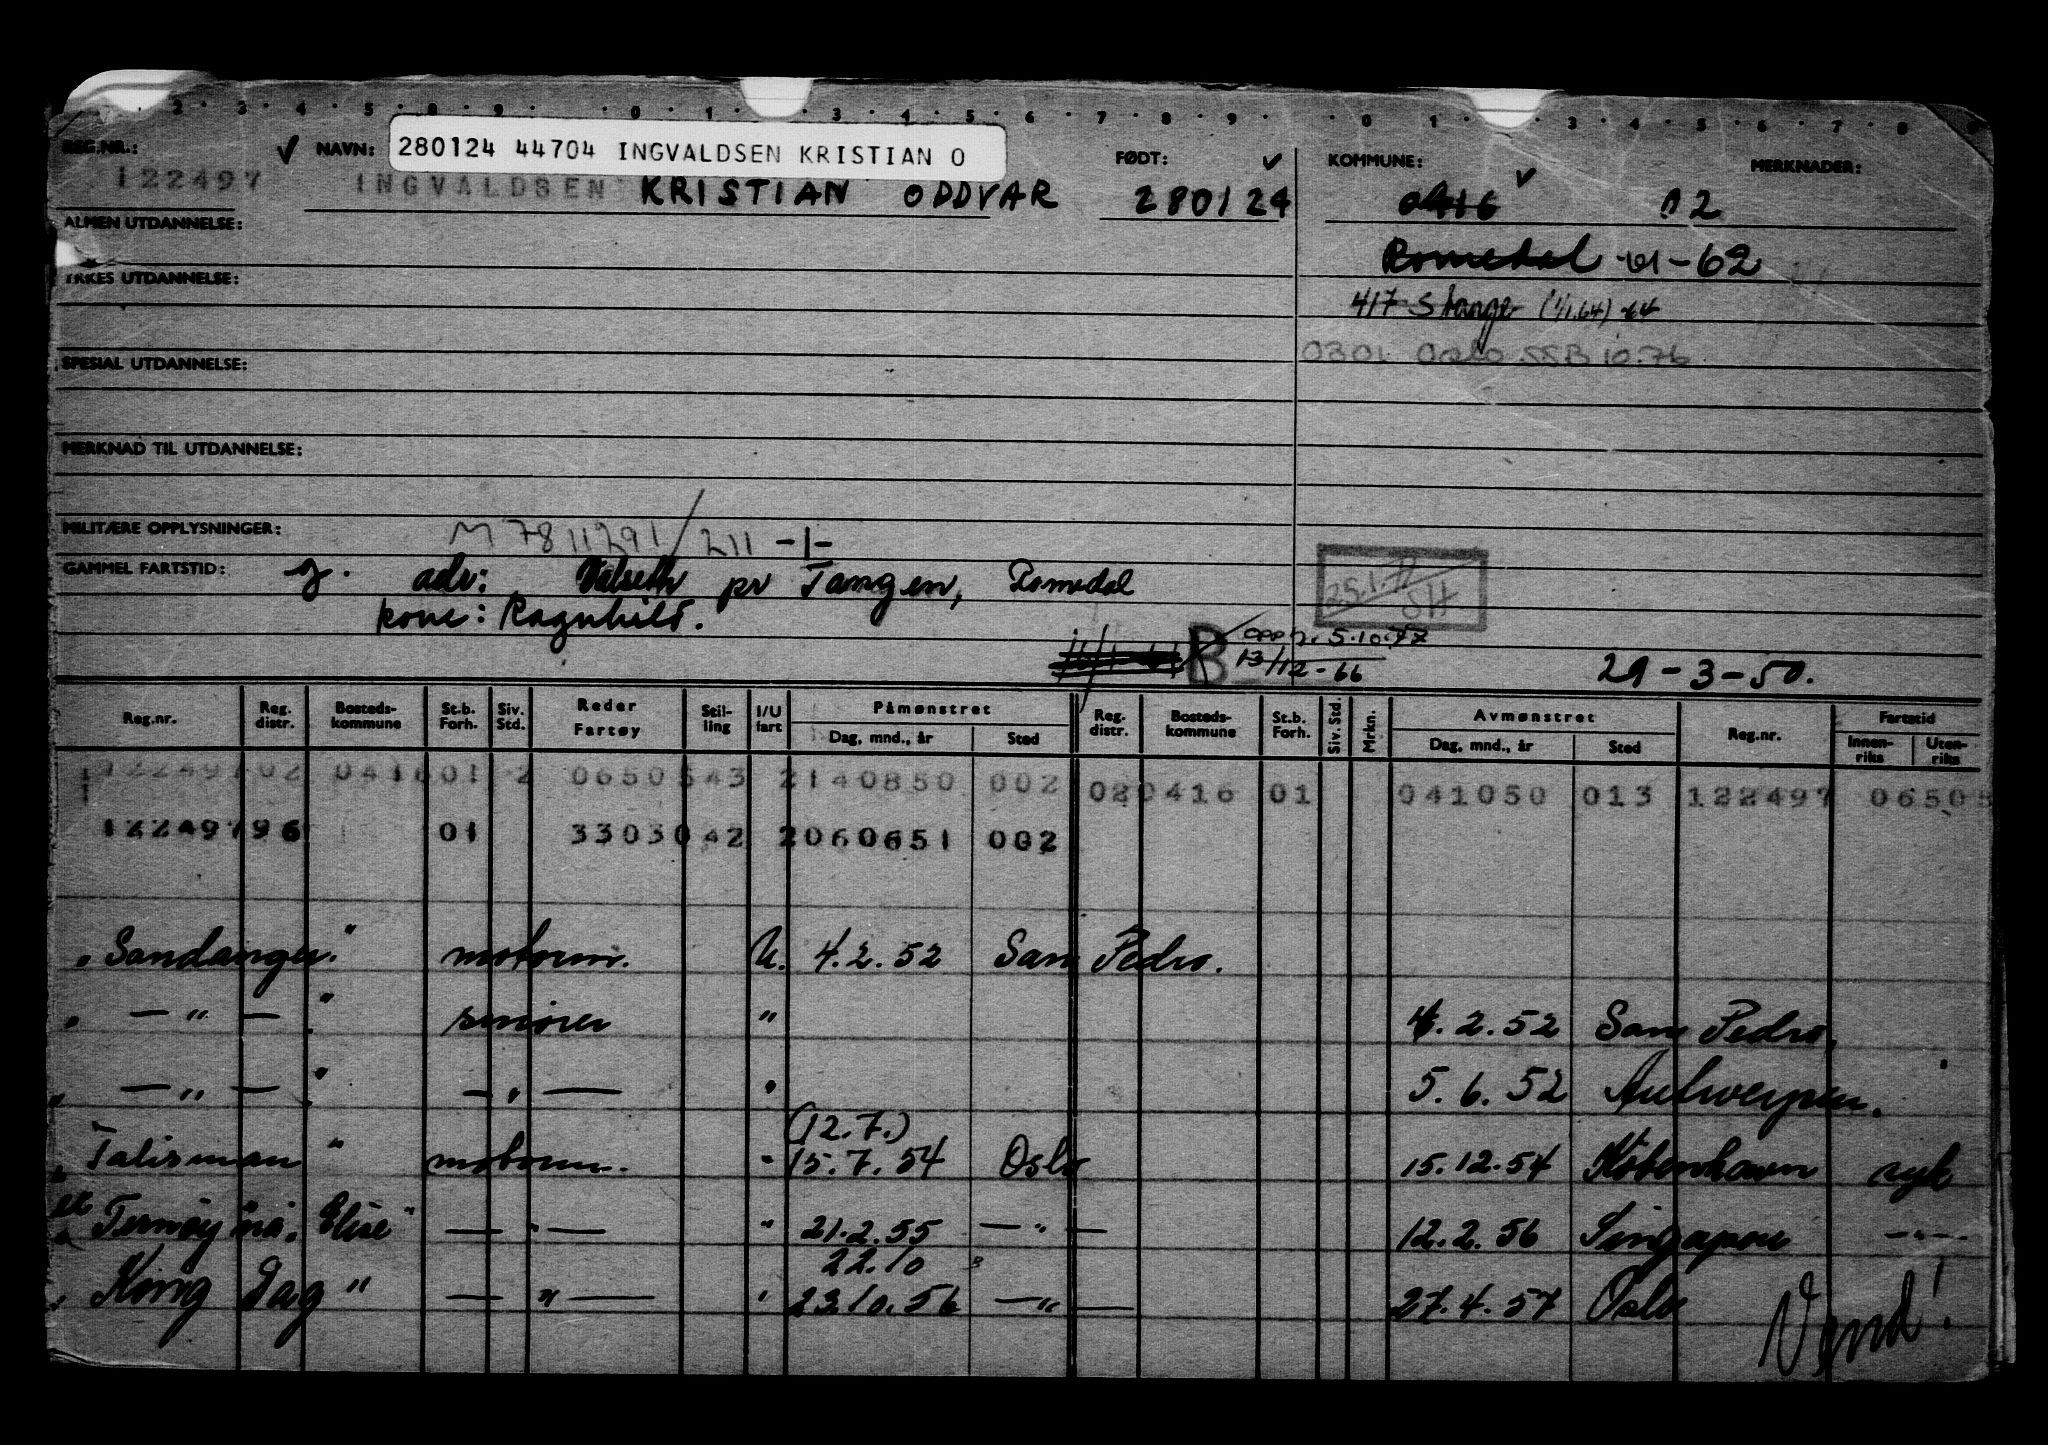 2 · 3 · 4 · 5 · 8 · 9 · 0 · 1 · 3 · 4 · 5 · 6 · 7 · 8 · 9 · 0 · 1 · 3 · 4 · 5 · 6 · 7 · 8 · 9
REG.NR.: NAVN: 280124 44704 INGVALDSEN KRISTIAN O FØDT: KOMMUNE: MERKNADER:
122497 INGVALDSEN KRISTIAN ODDVAR 280124 0416 02
ALMEN UTDANNELSE:
Romedal -61-62
YRKES UTDANNELSE:
417 Stange (1/1.64) -64
0301 Oslo SSB 10.76
SPESIAL UTDANNELSE:
MERKNAD TIL UTDANNELSE:
MILITÆRE OPPLYSNINGER: M 7811291/211 -1-
GAMMEL FARTSTID: g. adr: Valseth pr Tangen, Romedal
25.1.72
kone: Ragnhild.
B opph. 5.10.77
13/12-66 29-3-50.
Reg.nr. Reg. distr. Bosteds-kommune St.b. Forh. Siv. Std. Reder Fartøy Stil-ling I/U fart Påmønstret Dag, mnd., år Sted Reg. distr. Bosteds-kommune St.b. Forh. Siv. Std. Mrkn. Avmønstret Dag, mnd., år Sted Reg.nr. Fartstid Innen-riks Uten-riks
122497 02 0416 01 2 0650543 2140850 002 02 0416 01 041050 013 122497 06505
122497 96 01 3303042 2060651 002
"Sandanger" motorm. U. 4.2.52 San Pedro.
" — " — " smører " 4.2.52 San Pedro.
" — " — " — " — " 5.6.52 Antwerpen.
(12.7.)
"Talisman" motorm. " 15.7.54 Oslo 15.12.54 København syk
"Ternøy nå. Elise" — " — " 21.2.55 — " — 12.2.56 Singapore — " —
22.10
"King Dag" — " — " 23.10.56 — " — 27.4.57 Oslo
Vend!